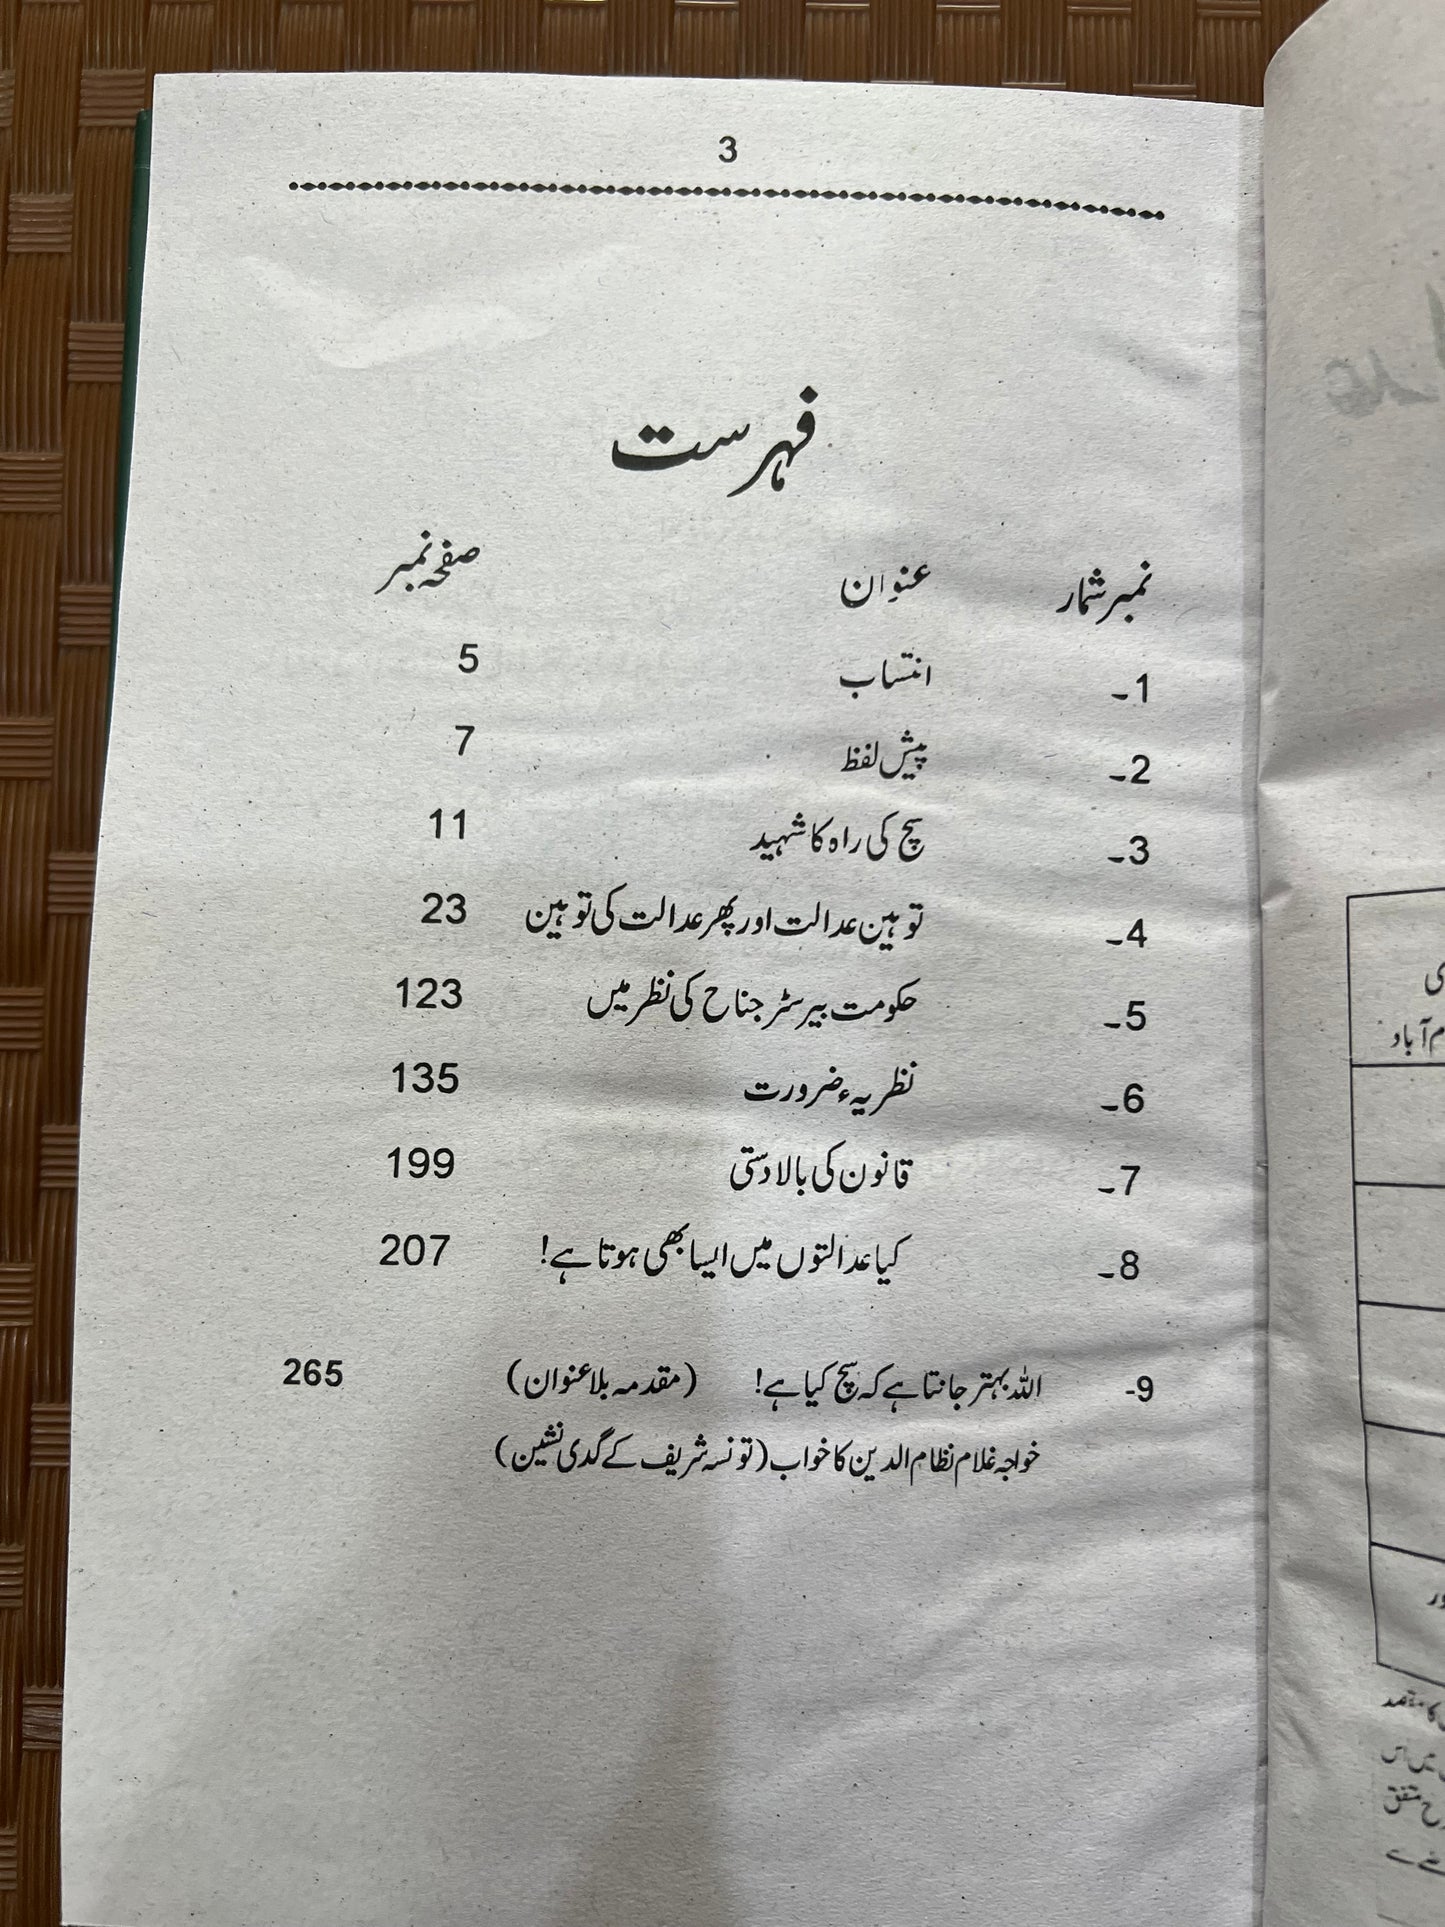 3
فہرست
نمبر شمار عنوان صفحہ نمبر
1۔ انتساب 5
2۔ پیش لفظ 7
3۔ سچ کی راہ کا شہید 11
4۔ توہین عدالت اور پھر عدالت کی توہین 23
5۔ حکومت بیرسٹر جناح کی نظر میں 123
6۔ نظریہء ضرورت 135
7۔ قانون کی بالادستی 199
8۔ کیا عدالتوں میں ایسا بھی ہوتا ہے! 207
9- اللہ بہتر جانتا ہے کہ سچ کیا ہے! (مقدمہ بلا عنوان) 265
خواجہ غلام نظام الدین کا خواب (تونسہ شریف کے گدی نشین)